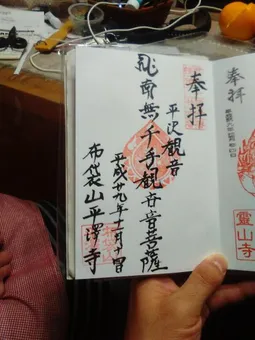 奉拝
平沢観音
南無千手観世音菩薩
平成廿九年一月十四日
布袋山平澤寺
奉拝
霊山寺